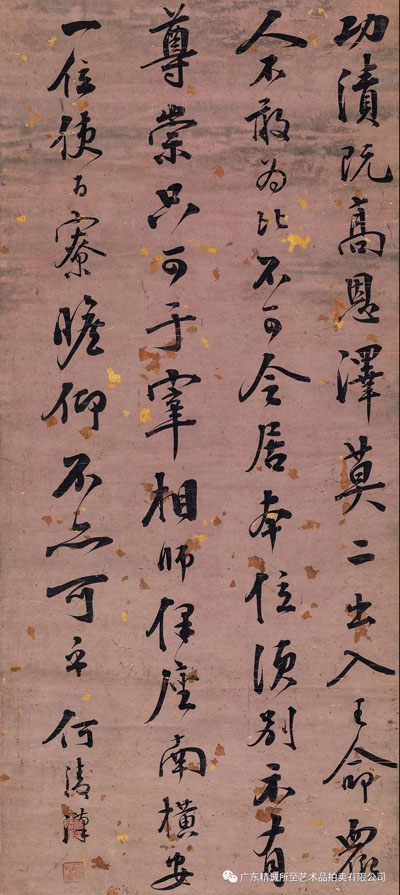 功績既高恩澤莫二出入王命眾
人不敢為比不可令居本位須別示有
尊崇只可于宰相師保座南橫安
一位使百寮瞻仰不亦可乎 何淩漢
广东精诚所至艺术品拍卖有限公司